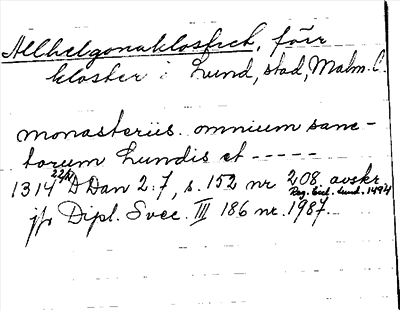 Allhelgonaklostret, förr
kloster i Lund, stad, Malm. l.
monasteriis omnium sanc-
torum Lundis et -----
1314 22/2 D Dan 2.7, s. 152 nr 208 avskr.
Reg. Eccl. Lund. 1494
jfr Dipl. Svec. III 186 nr. 1987.